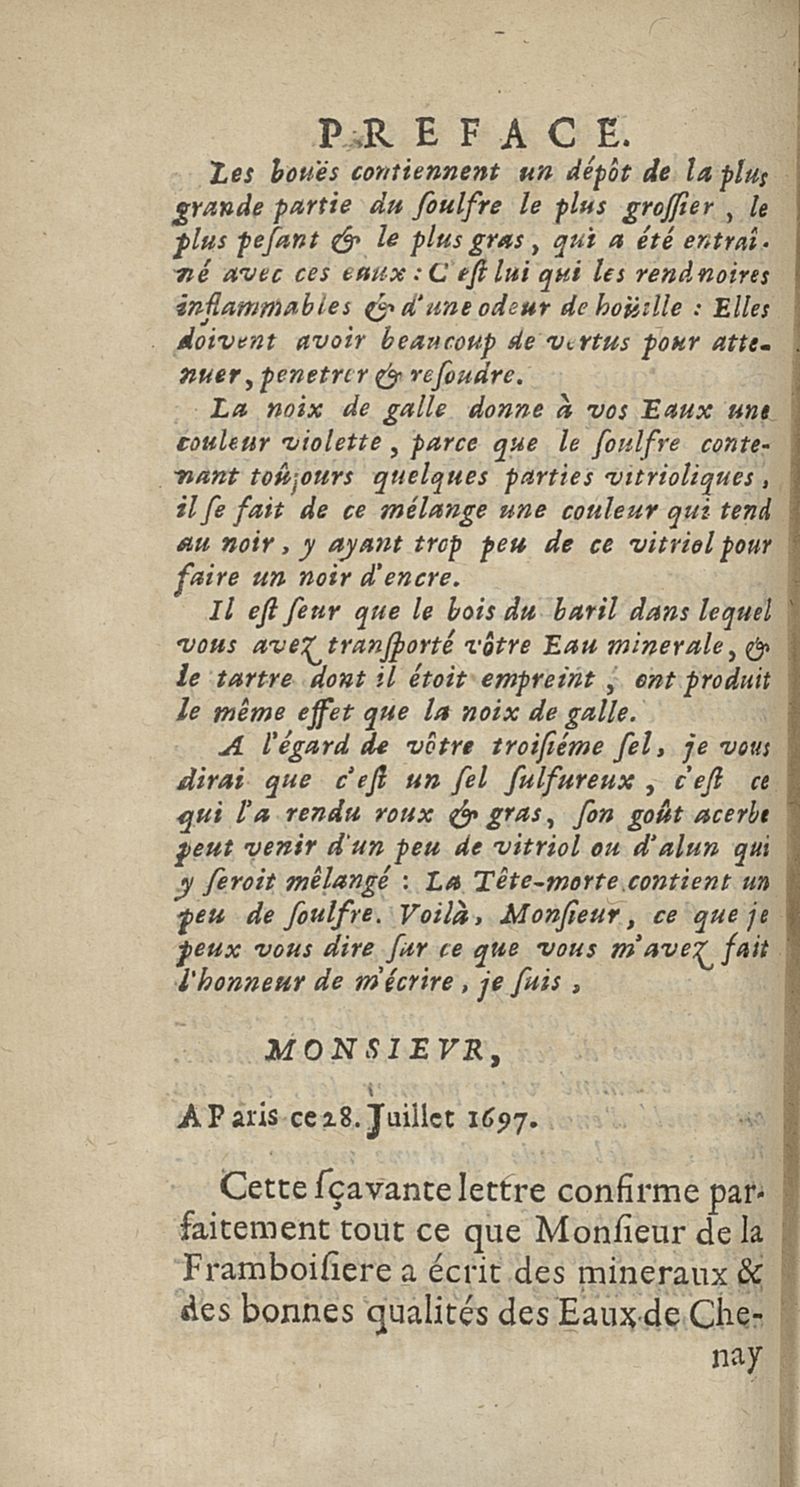 PREFACE.
Les bouës contiennent un dépôt de la plus
grande partie du ſoulfre le plus groſſier , le
plus peſant & le plus gras, qui a été entraî-
né avec ces eaux : C'eſt lui qui les rend noires
inflammables & d'une odeur de hoüille : Elles
doivent avoir beaucoup de vertus pour atte-
nuer, penetrer & reſoudre.
La noix de galle donne à vos Eaux une
couleur violette , parce que le ſoulfre conte-
nant toûjours quelques parties vitrioliques ,
il ſe fait de ce mélange une couleur qui tend
au noir , y ayant trop peu de ce vitriol pour
faire un noir d'encre.
Il eſt ſeur que le bois du baril dans lequel
vous avez tranſporté vôtre Eau minerale, &
le tartre dont il étoit empreint , ont produit
le même effet que la noix de galle.
A l'égard de vôtre troiſiéme ſel, je vous
dirai que c'eſt un ſel ſulfureux , c'eſt ce
qui l'a rendu roux & gras, ſon goût acerbe
peut venir d'un peu de vitriol ou d'alun qui
y ſeroit mêlangé : La Tête-morte contient un
peu de ſoulfre. Voilà, Monſieur, ce que je
peux vous dire ſur ce que vous m'avez fait
l'honneur de m'écrire , je ſuis ,
MONSIEVR,
A Paris ce 28. Juillet 1697.
Cette ſçavante lettre confirme par-
faitement tout ce que Monſieur de la
Framboiſiere a écrit des mineraux &
des bonnes qualités des Eaux de Che-
nay